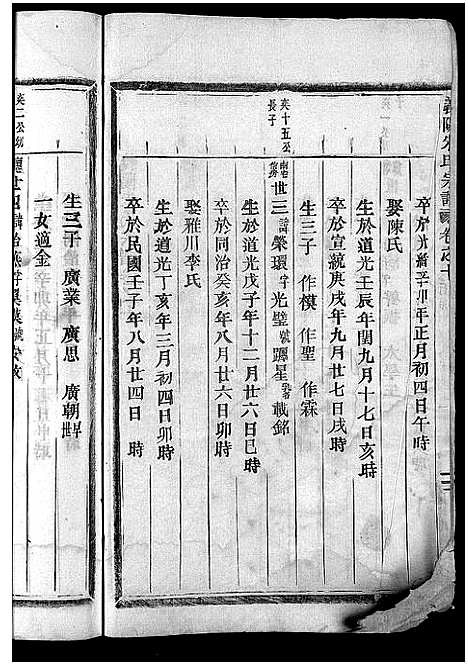 義陽朱氏宗譜
卒於光緒辛卯年正月初四日午時
娶陳氏
生於道光壬辰年閏九月十七日亥時
卒於宣統庚戌年九月廿七日戌時
生三子 作模 作聖 作霖
奕十五公長子 世三 諱榮環字光璧號躔星 載銘
生於道光戊子年十二月廿六日巳時
卒於同治癸亥年八月廿六日卯時
娶雅川李氏
生於道光丁亥年三月初四日卯時
卒於民國壬子年八月廿四日 時
生三子 廣業 廣思 廣朝
一女適金
奕二公 世四